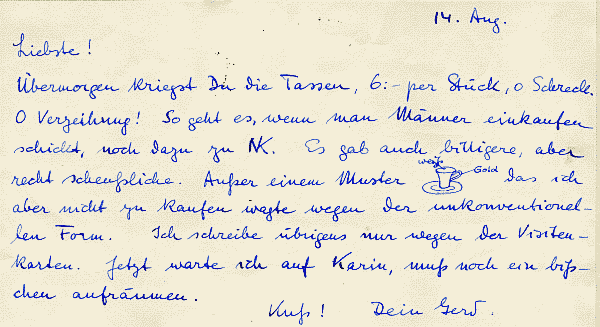 14. Aug.
Liebste!
Übermorgen kriegst Du die Tassen, 6:- per Stück, o Schreck.
O Verzeihung! So geht es, wenn man Männer einkaufen
schickt, noch dazu zu NK. Es gab auch billigere, aber
recht scheußliche. Außer einem Muster weiß Gold das ich
aber nicht zu kaufen wagte wegen der unkonventionel-
len Form. Ich schreibe übrigens nur wegen der Visiten-
karten. Jetzt warte ich auf Karin, muß noch ein biß-
chen aufräumen.
Kuß! Dein Gerd.